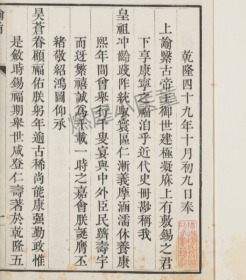 乾隆四十九年十月初九日奉
上諭繄古帝王御世建極凝庥上有敷錫之君
下享康寧之福洎乎近代史冊尠稱我
皇祖沖齡踐阼統馭寰區仁漸義摩涵濡休養康
熙年間曾舉行千叟宴與中外臣民躋壽宇
而迓繁禧誠為千載一時之嘉會朕誕膺丕
緒敬紹鴻圖仰承
昊蒼眷顧福佑朕躬年逾古稀尚能康强勤政惟
是斂時錫福期舉世咸登仁壽著於乾隆五